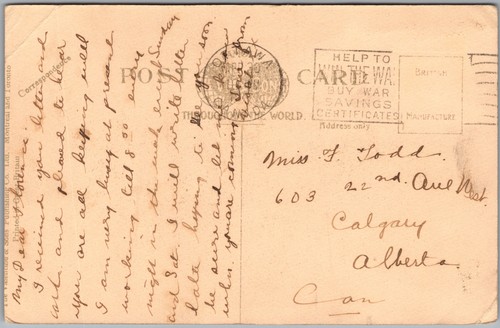 POST CARD
THROUGHOUT THE WORLD.
Address only
Correspondence
Valentine & Sons Publishing Co. Ltd., Montreal and Toronto
OTTAWA
HELP TO
WIN THE WAR
BUY WAR
SAVINGS
CERTIFICATES
BRITISH
MANUFACTURE
Miss F Todd
603 22nd Ave West
Calgary
Alberta
Can
My Dear
I received you letter and
card and pleased to hear
you are all keeping well
I am very busy at present
working till 8.30 every
night in the week except Sunday
and Sat. I will write letter
later hoping to
be sure and let me
when you are coming